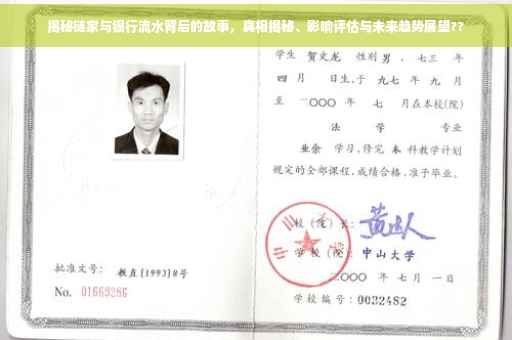 揭秘链家与银行流水背后的故事，真相揭秘、影响评估与未来趋势展望??
学生 贺文龙 性别 男 、七三 年
四 月 日生,于 九七 年 九 月
至 二〇〇〇 年 七 月在本校(院)
法 学 专业
业余 学习,修完 本 科教学计划
规定的全部课程,成绩合格,准予毕业。
校(院)长:
学校(院): 中山大学
二〇〇〇 年 七 月 一 日
批准文号: 教直[1993]8号
No. 01669286
学校编号: 0032482